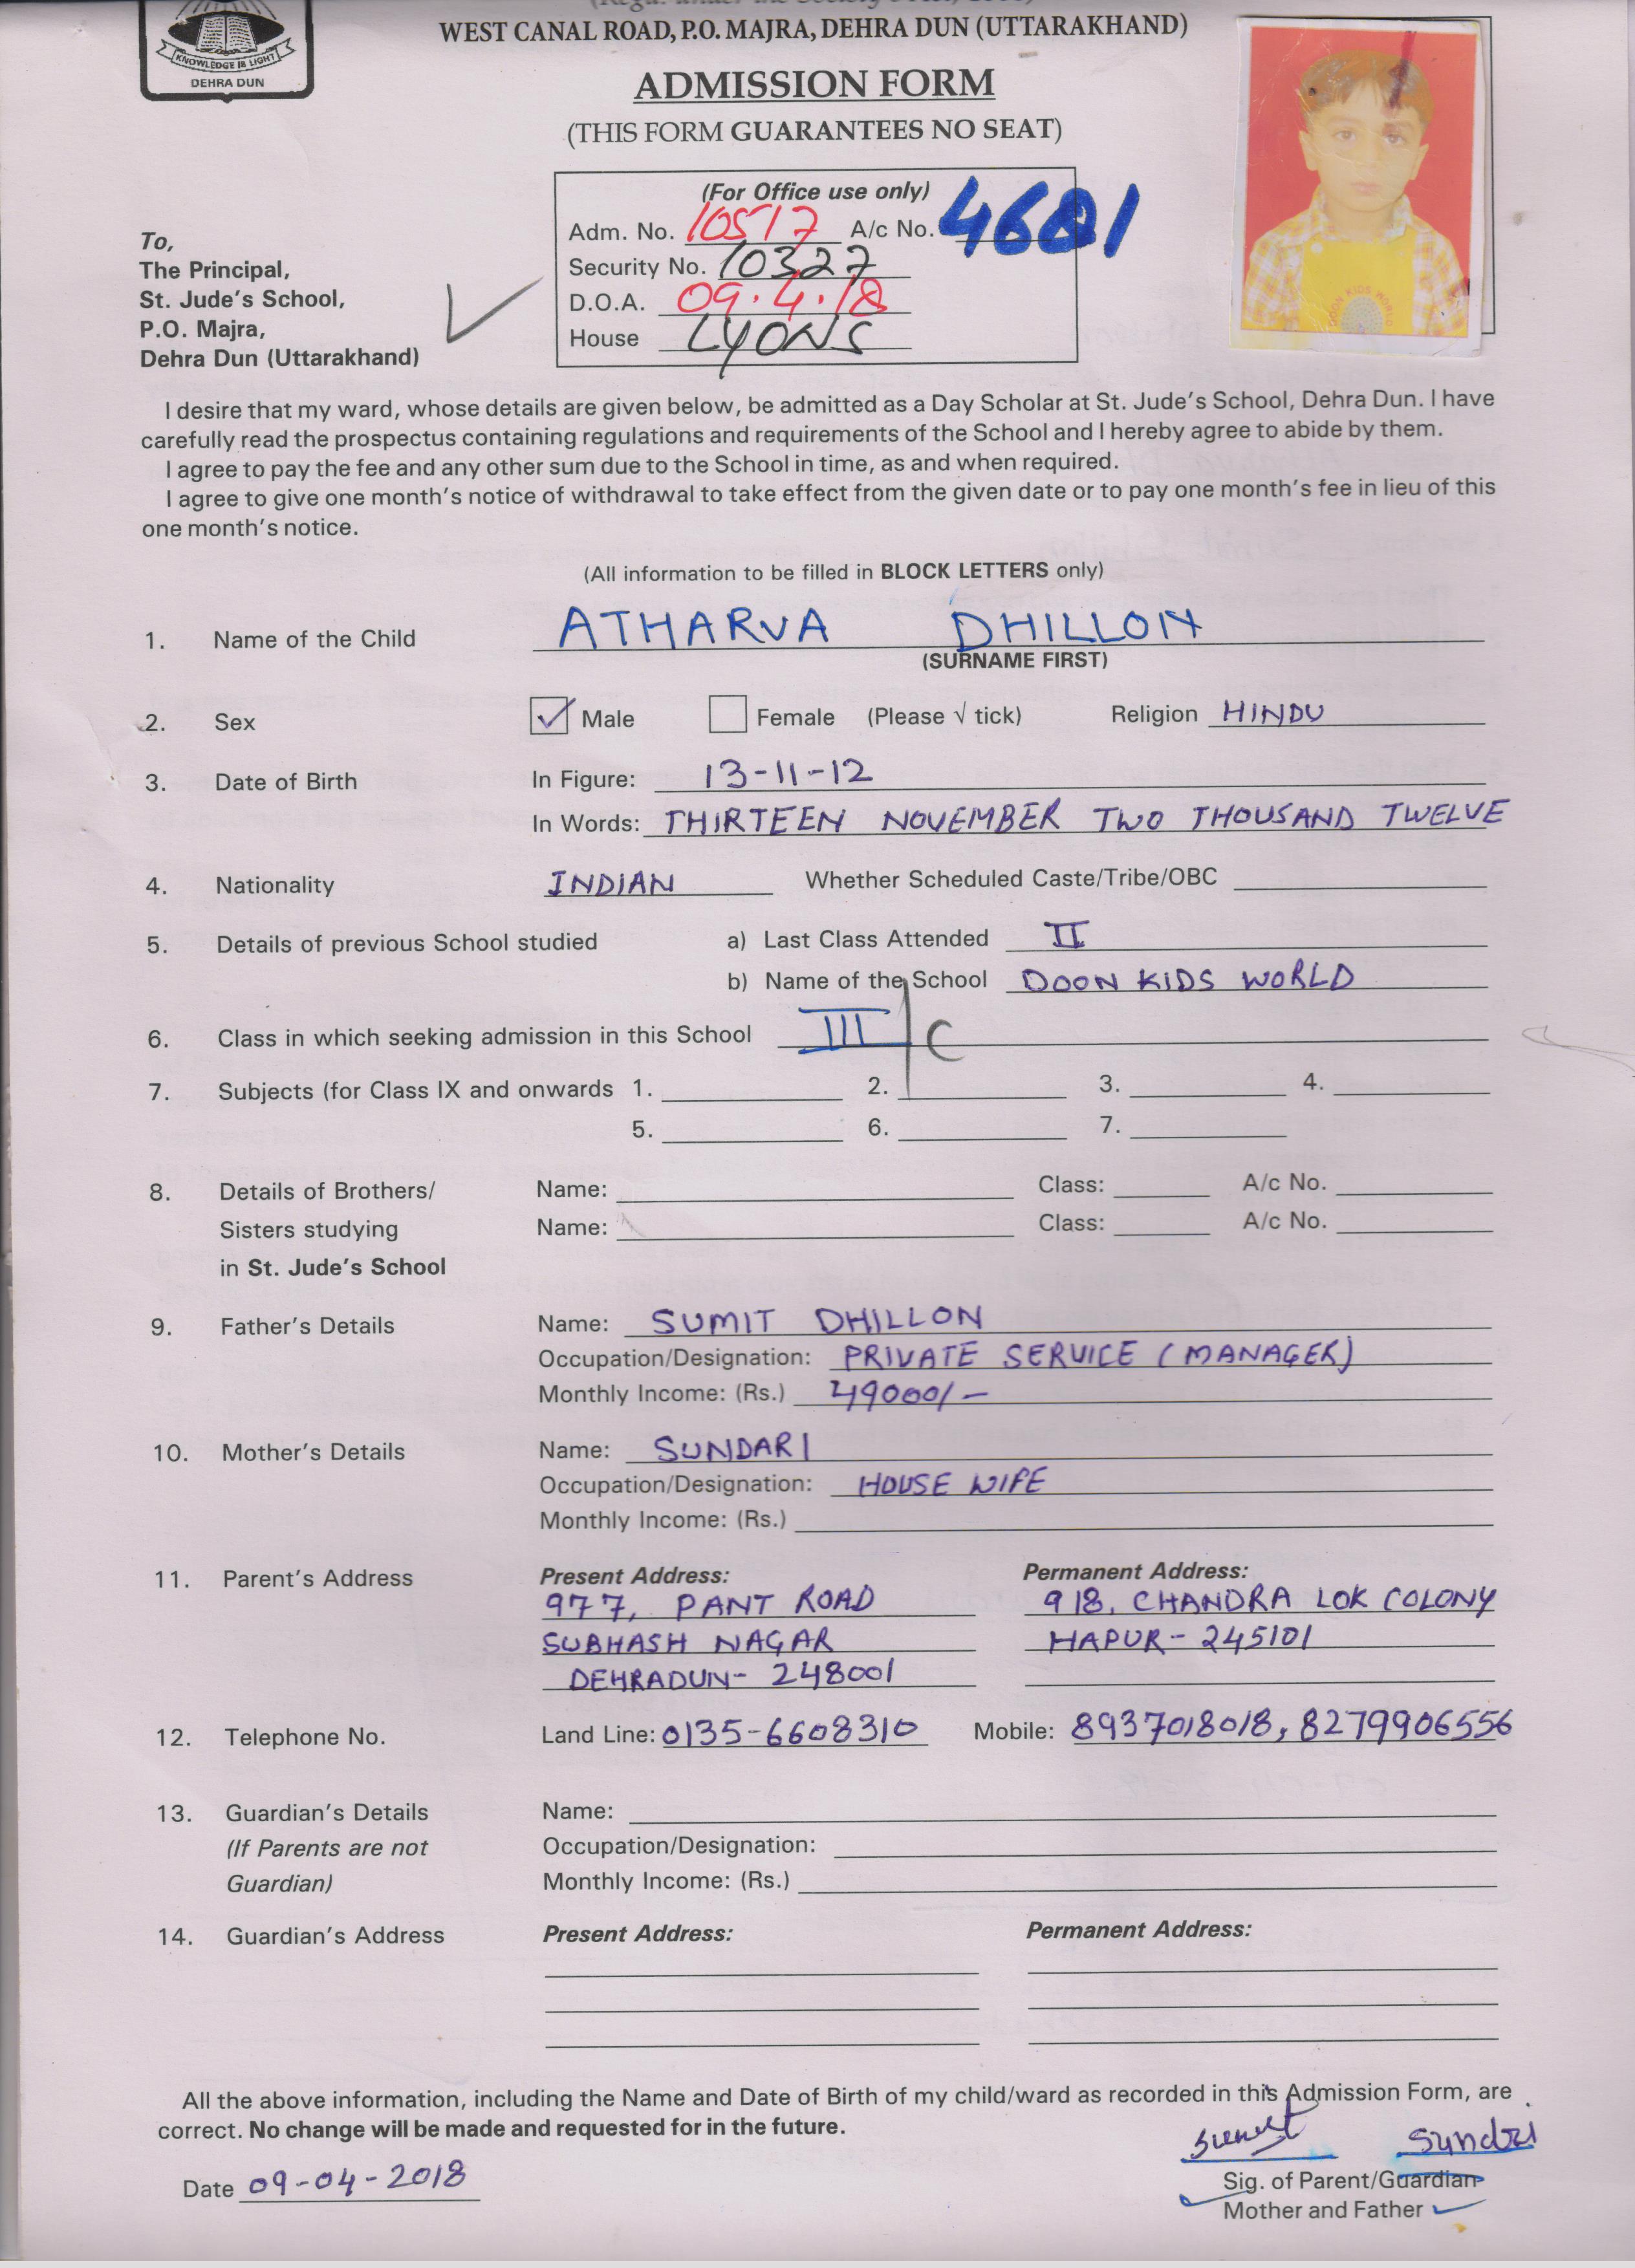 KNOWLEDGE IS LIGHT
DEHRA DUN
WEST CANAL ROAD, P.O. MAJRA, DEHRA DUN (UTTARAKHAND)
ADMISSION FORM
(THIS FORM GUARANTEES NO SEAT)
(For Office use only)
Adm. No. 10517 A/c No. 4681
Security No. 10327
D.O.A. 09.4.18
House LYONS
To,
The Principal,
St. Jude's School,
P.O. Majra,
Dehra Dun (Uttarakhand)
DOON KIDS WORLD
I desire that my ward, whose details are given below, be admitted as a Day Scholar at St. Jude's School, Dehra Dun. I have
carefully read the prospectus containing regulations and requirements of the School and I hereby agree to abide by them.
I agree to pay the fee and any other sum due to the School in time, as and when required.
I agree to give one month's notice of withdrawal to take effect from the given date or to pay one month's fee in lieu of this
one month's notice.
(All information to be filled in BLOCK LETTERS only)
1. Name of the Child ATHARVA DHILLON
(SURNAME FIRST)
2. Sex Male Female (Please √ tick) Religion HINDU
3. Date of Birth In Figure: 13-11-12
In Words: THIRTEEN NOVEMBER TWO THOUSAND TWELVE
4. Nationality INDIAN Whether Scheduled Caste/Tribe/OBC
5. Details of previous School studied a) Last Class Attended II
b) Name of the School DOON KIDS WORLD
6. Class in which seeking admission in this School III C
7. Subjects (for Class IX and onwards 1. 2. 3. 4.
5. 6. 7.
8. Details of Brothers/ Name: Class: A/c No.
Sisters studying Name: Class: A/c No.
in St. Jude's School
9. Father's Details Name: SUMIT DHILLON
Occupation/Designation: PRIVATE SERVICE (MANAGER)
Monthly Income: (Rs.) 49000/-
10. Mother's Details Name: SUNDARI
Occupation/Designation: HOUSE WIFE
Monthly Income: (Rs.)
11. Parent's Address Present Address: Permanent Address:
977, PANT ROAD 918, CHANDRA LOK COLONY
SUBHASH NAGAR HAPUR- 245101
DEHRADUN- 248001
12. Telephone No. Land Line: 0135-6608310 Mobile: 8937018018, 8279906556
13. Guardian's Details Name:
(If Parents are not Occupation/Designation:
Guardian) Monthly Income: (Rs.)
14. Guardian's Address Present Address: Permanent Address:
All the above information, including the Name and Date of Birth of my child/ward as recorded in this Admission Form, are
correct. No change will be made and requested for in the future.
Date 09-04-2018
Sig. of Parent/Guardian
Mother and Father